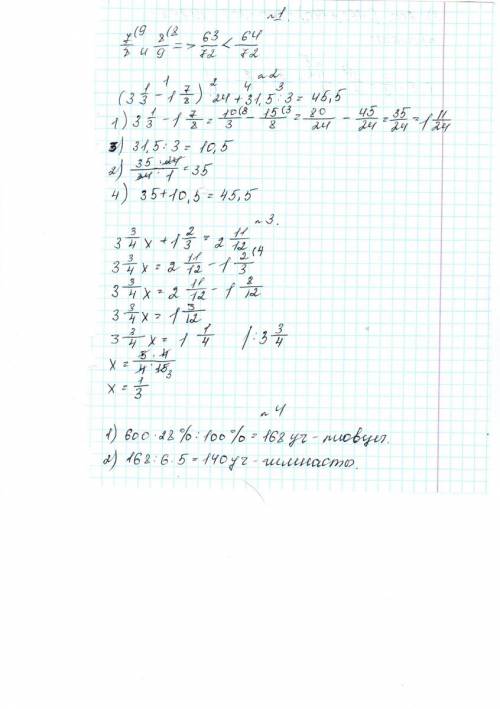 №1.
7/8 (9 и 8/9 (8 => 63/72 < 64/72
№2
(3 1/3 - 1 7/8) · 24 + 31,5 : 3 = 45,5
1) 3 1/3 - 1 7/8 = 10/3 (8 - 15/8 (3 = 80/24 - 45/24 = 35/24 = 1 11/24
3) 31,5 : 3 = 10,5
2) 35 · 24 / 24 · 1 = 35
4) 35 + 10,5 = 45,5
№3.
3 3/4 x + 1 2/3 = 2 11/12
3 3/4 x = 2 11/12 - 1 2/3 (4
3 3/4 x = 2 11/12 - 1 8/12
3 3/4 x = 1 3/12
3 3/4 x = 1 1/4 | : 3 3/4
x = 5 · 4 / 4 · 15 3
x = 1/3
№4
1) 600 · 28% : 100% = 168 уч - пловцы.
2) 168 : 6 · 5 = 140 уч - гимнасты.